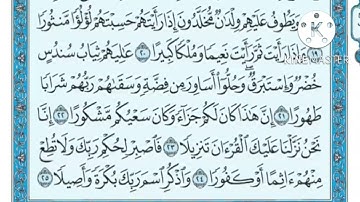 ۞ وَيَطُوفُ عَلَيْهِمْ وِلْدَٰنٌ مُّخَلَّدُونَ إِذَا رَأَيْتَهُمْ حَسِبْتَهُمْ لُؤْلُؤًا مَّنثُورًا
﴿١٩﴾ وَإِذَا رَأَيْتَ ثَمَّ رَأَيْتَ نَعِيمًا وَمُلْكًا كَبِيرًا ﴿٢٠﴾ عَٰلِيَهُمْ ثِيَابُ سُندُسٍ
خُضْرٌ وَإِسْتَبْرَقٌ وَحُلُّوٓا۟ أَسَاوِرَ مِن فِضَّةٍ وَسَقَىٰهُمْ رَبُّهُمْ شَرَابًا
طَهُورًا ﴿٢١﴾ إِنَّ هَٰذَا كَانَ لَكُمْ جَزَآءً وَكَانَ سَعْيُكُم مَّشْكُورًا ﴿٢٢﴾ إِنَّا
نَحْنُ نَزَّلْنَا عَلَيْكَ ٱلْقُرْءَانَ تَنزِيلًا ﴿٢٣﴾ فَٱصْبِرْ لِحُكْمِ رَبِّكَ وَلَا تُطِعْ
مِنْهُمْ ءَاثِمًا أَوْ كَفُورًا ﴿٢٤﴾ وَٱذْكُرِ ٱسْمَ رَبِّكَ بُكْرَةً وَأَصِيلًا ﴿٢٥﴾
KINEMASTER